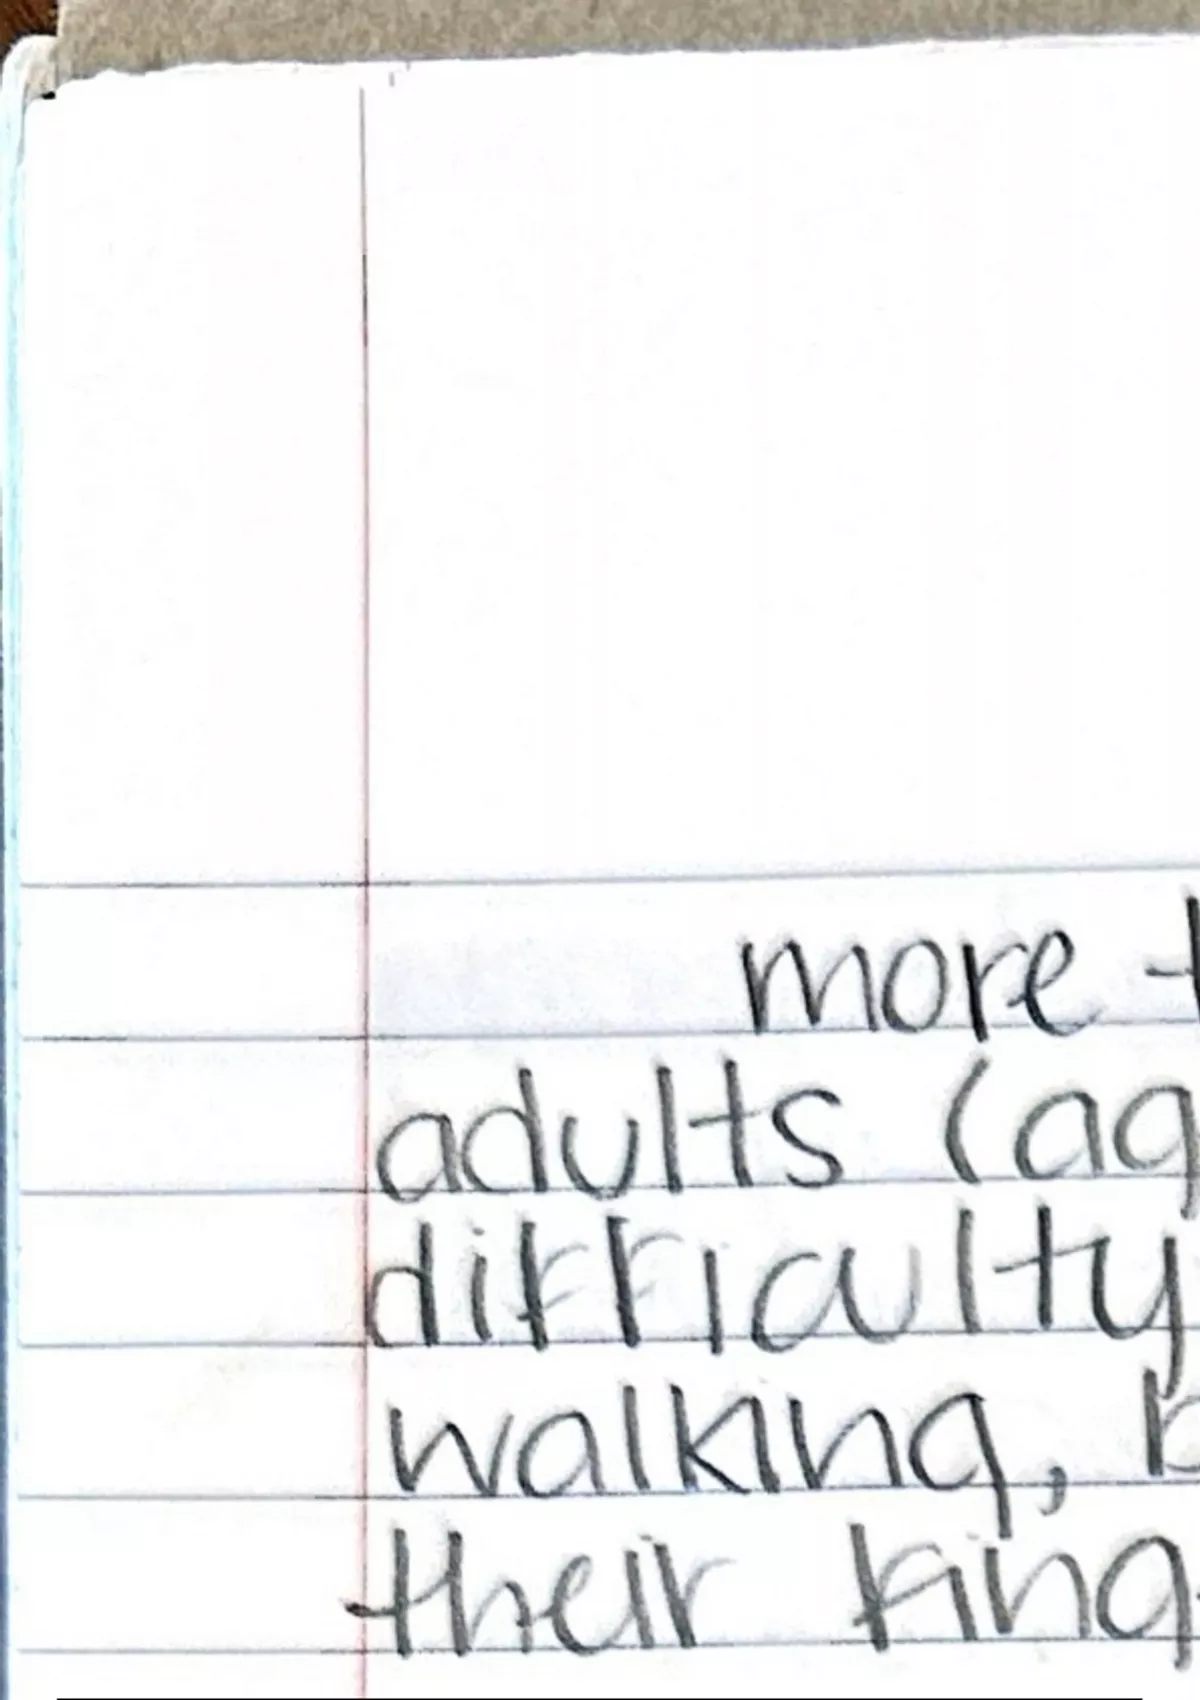 more t
adults (ag
difficulty
walking, b
their fing